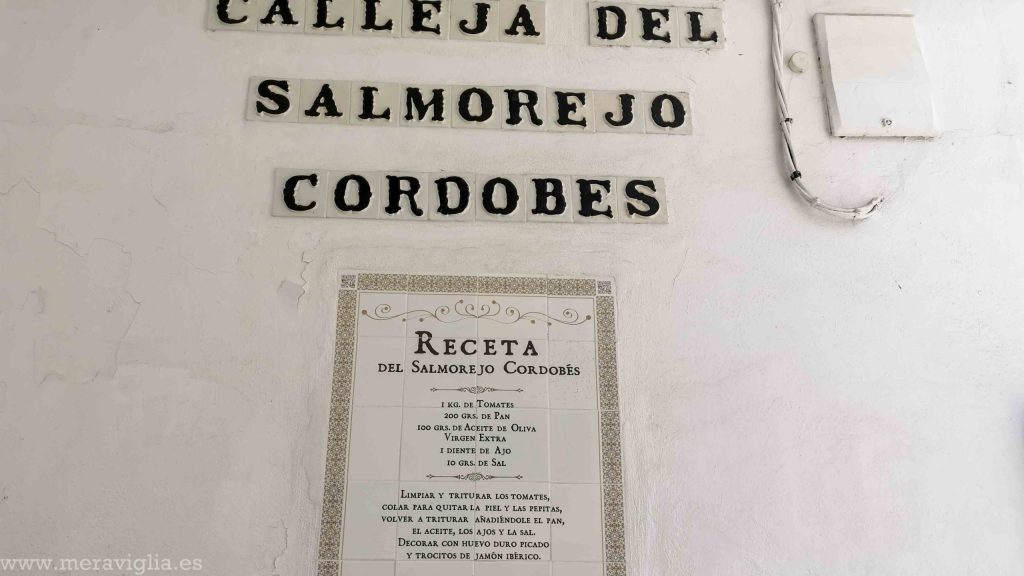 CALLEJA DEL
SALMOREJO
CORDOBES
RECETA
DEL SALMOREJO CORDOBÉS
1 KG. DE TOMATES
200 GRS. DE PAN
100 GRS. DE ACEITE DE OLIVA
VIRGEN EXTRA
1 DIENTE DE AJO
10 GRS. DE SAL
LIMPIAR Y TRITURAR LOS TOMATES,
COLAR PARA QUITAR LA PIEL Y LAS PEPITAS,
VOLVER A TRITURAR AÑADIÉNDOLE EL PAN,
EL ACEITE, LOS AJOS Y LA SAL.
DECORAR CON HUEVO DURO PICADO
Y TROCITOS DE JAMÓN IBÉRICO.
www.meraviglia.es